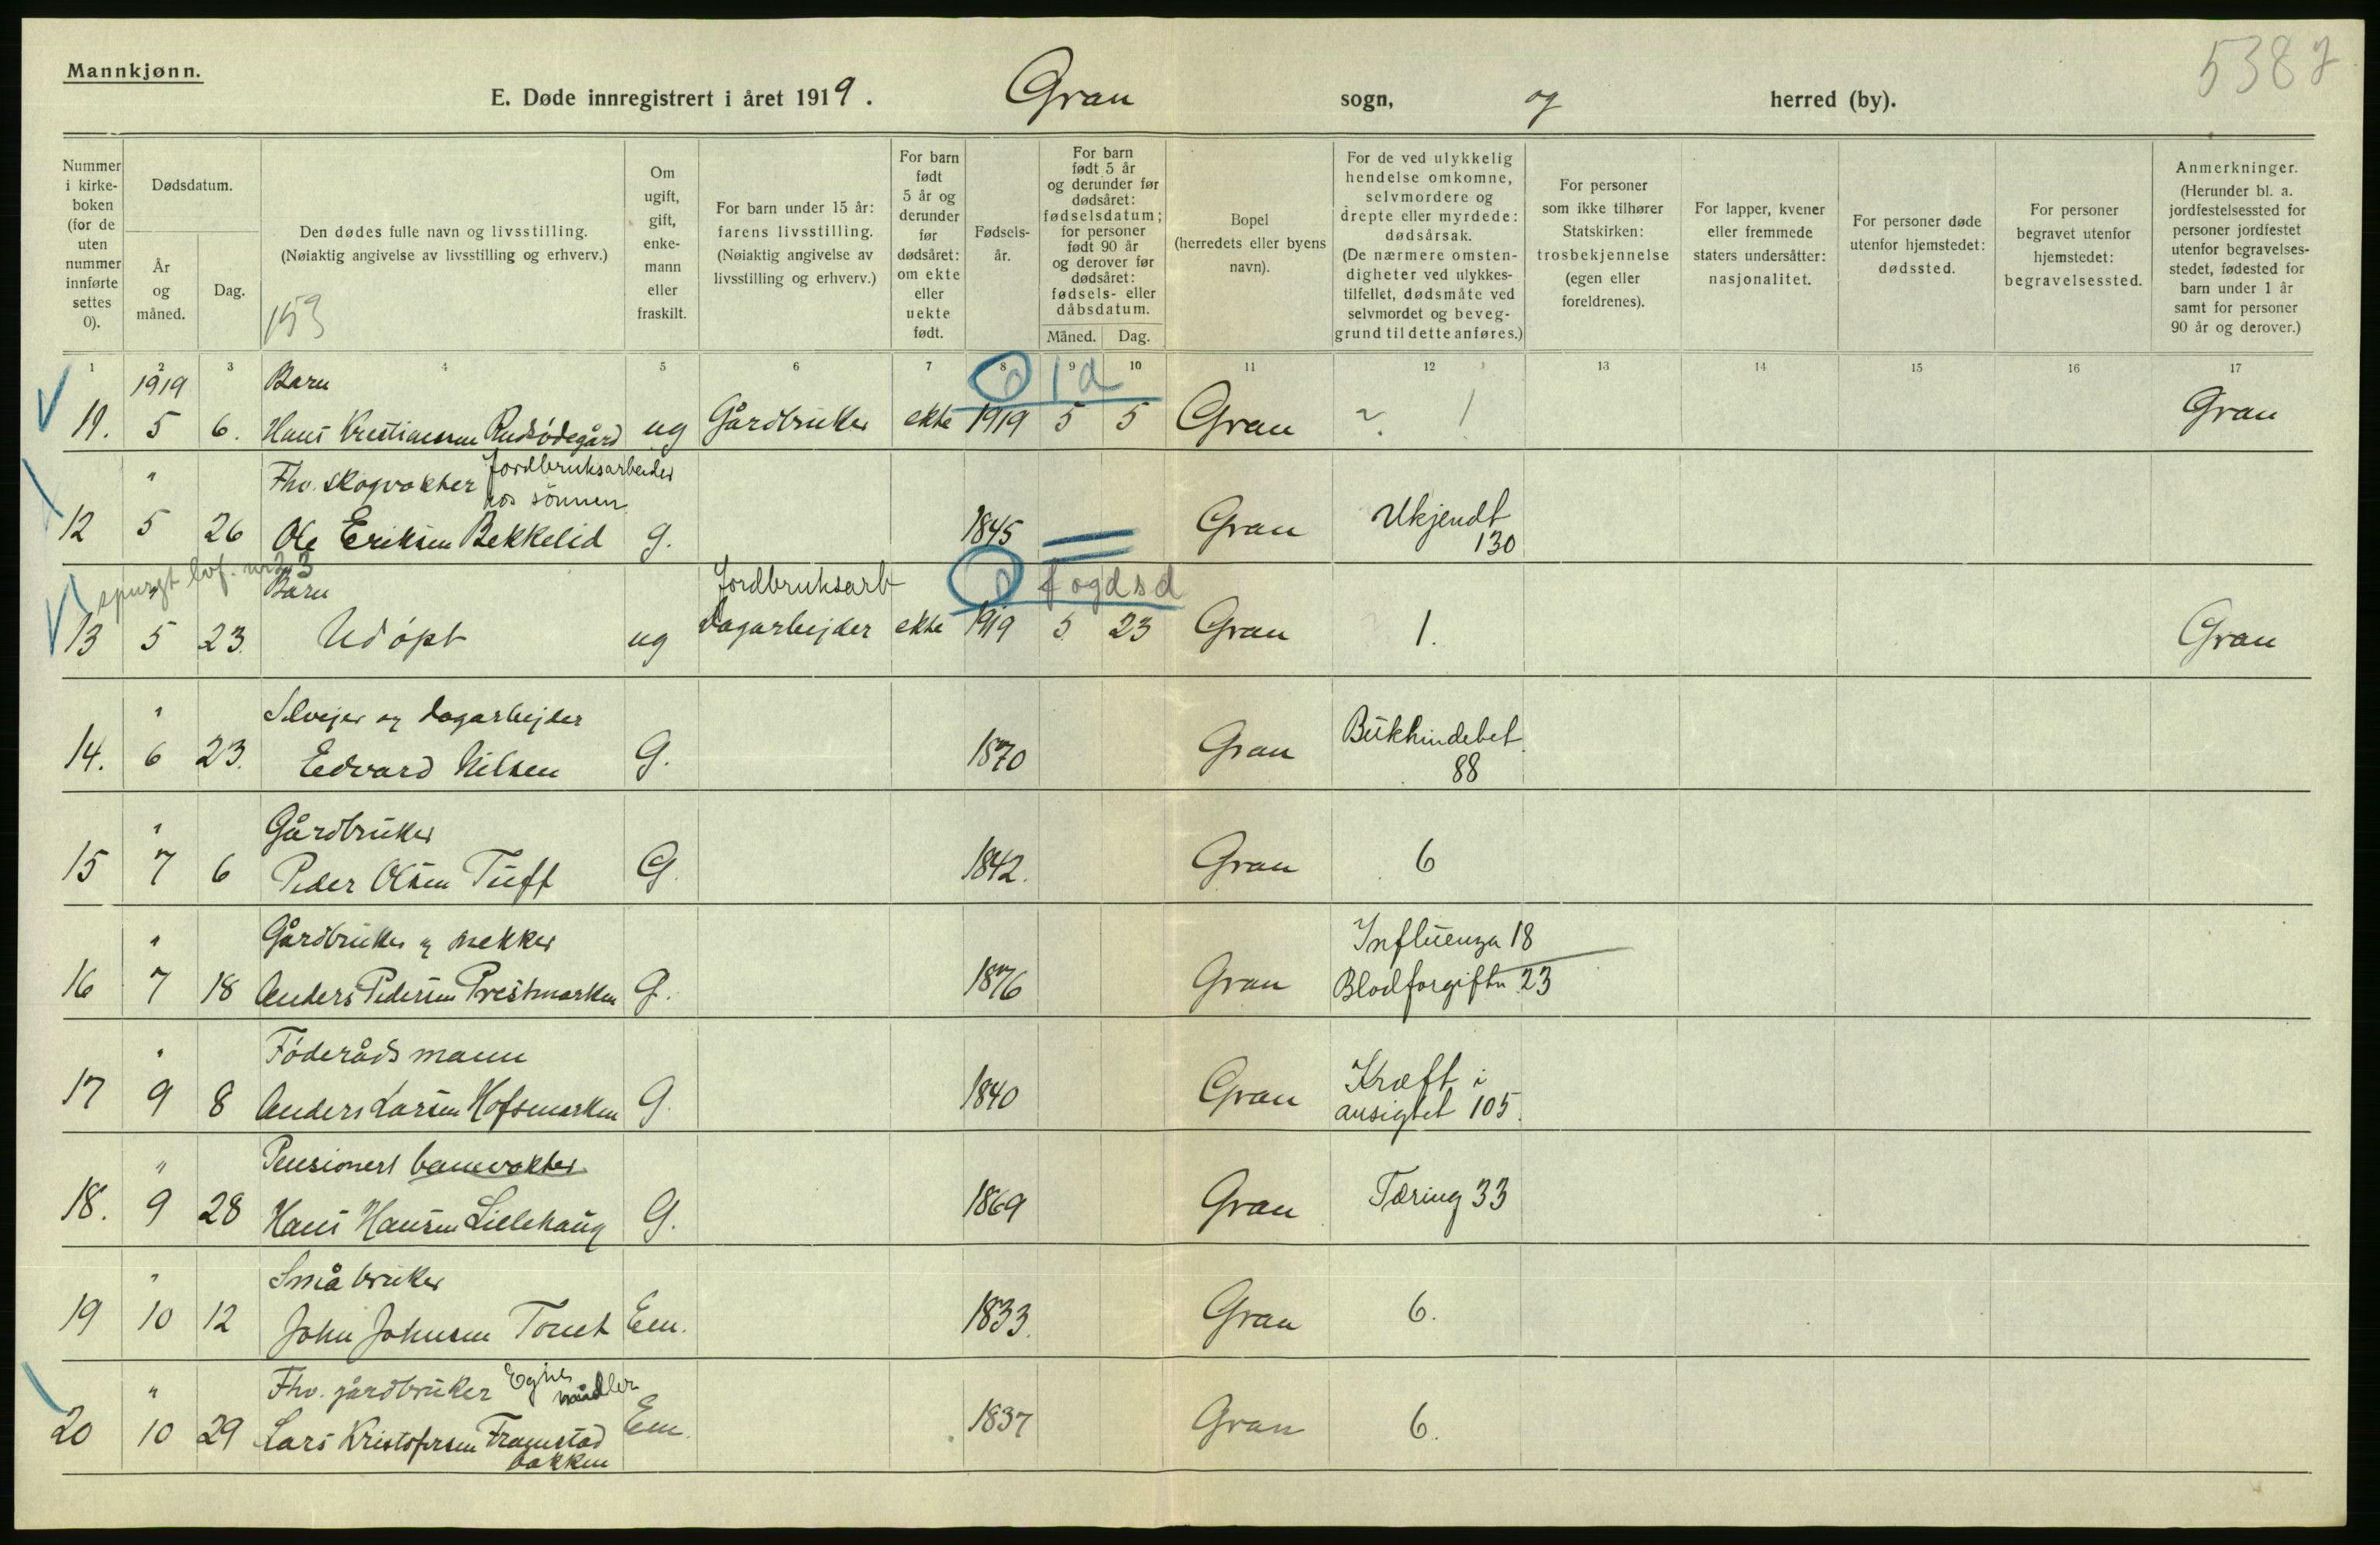 Mannkjønn.
5382
E. Døde innregistrert i året 1919. Gran sogn, og herred (by).
Nummer i kirke-boken (for de uten nummer innførte settes 0).
Dødsdatum.
År og måned.
Dag.
Den dødes fulle navn og livsstilling.
(Nøiaktig angivelse av livsstilling og erhverv.)
153
Om ugift, gift, enke-mann eller fraskilt.
For barn under 15 år: farens livsstilling.
(Nøiaktig angivelse av livsstilling og erhverv.)
For barn født 5 år og derunder før dødsåret: om ekte eller uekte født.
Fødsels-år.
For barn født 5 år og derunder før dødsåret: fødselsdatum; for personer født 90 år og derover før dødsåret: fødsels- eller dåbsdatum.
Måned. Dag.
Bopel (herredets eller byens navn).
For de ved ulykkelig hendelse omkomne, selvmordere og drepte eller myrdede: dødsårsak.
(De nærmere omsten-digheter ved ulykkes-tilfellet, dødsmåte ved selvmordet og beveg-grund til dette anføres.)
For personer som ikke tilhører Statskirken: trosbekjennelse (egen eller foreldrenes).
For lapper, kvener eller fremmede staters undersåtter: nasjonalitet.
For personer døde utenfor hjemstedet: dødssted.
For personer begravet utenfor hjemstedet: begravelsessted.
Anmerkninger.
(Herunder bl. a. jordfestelsessted for personer jordfestet utenfor begravelses-stedet, fødested for barn under 1 år samt for personer 90 år og derover.)
1 2 3 4 5 6 7 8 9 10 11 12 13 14 15 16 17
1919 Barn 0 1 d
11. 5 6. Hans Kristiansen Rudsødegård ug Gårdbruker ekte 1919 5 5 Gran ~. 1 Gran
" Fhv. skogvokter Jordbruksarbeider
hos sønnen
12 5 26 Ole Eriksen Bekkelid g. 1845 Gran Ukjendt
130
spurgt lvf. nr 23
" Barn Jordbruksarb 0 f og d s d
13 5 23. Udøpt ug Dagarbejder ekte 1919 5 23 Gran 1. Gran
" Selvejer og dagarbejder
14. 6 23. Edvard Nilsen G. 1870 Gran Bukhindebet.
88
" Gårdbruker
15 7 6 Peder Olsen Tuft G. 1842. Gran 6
" Gårdbruker og snekker Influenza 18
16 7 18 Anders Pedersen Prestmarken G. 1876 Gran Blodforgiftn 23
" Føderådsmann
17 9 8 Anders Larsen Hofsmarken G. 1840 Gran Kræft i
ansigtet 105.
" Pensionert banevokter
18. 9 28 Hans Hansen Lillehaug G. 1869 Gran Tæring 33
" Småbruker
19 10 12 John Johnsen Tomt Em. 1833. Gran 6.
" Fhv. gårdbruker Egne midler
20 10 29 Lars Kristofersen Framstad Em. 1837 Gran 6.
bakken